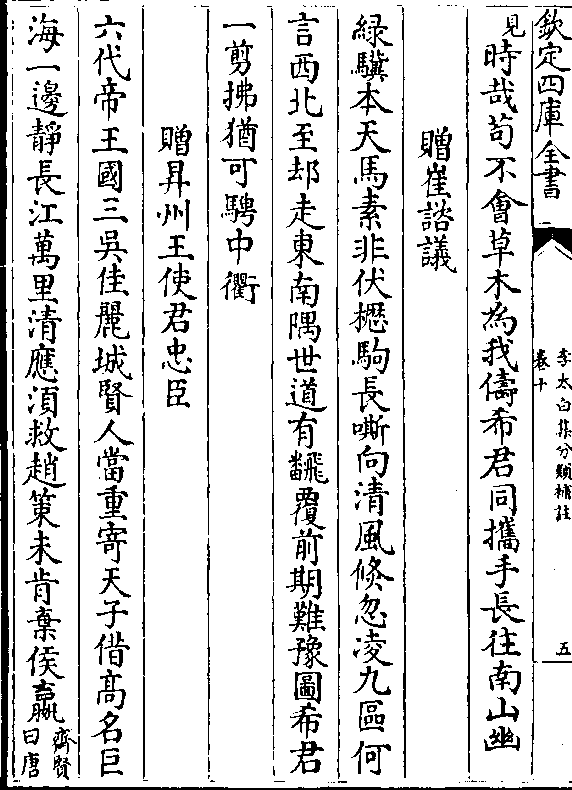 欽定四庫全書
李太白集分類補註
卷十
五
見時哉苟不會草木為我儔希君同攜手長往南山幽
贈崔諮議
緑驥本天馬素非伏櫪駒長嘶向清風倏忽凌九區何
言西北至却走東南隅世道有翻覆前期難豫圖希君
一剪拂猶可騁中衢
贈昇州王使君忠臣
六代帝王國三吳佳麗城賢人當重寄天子借高名巨
海一邊靜長江萬里清應須救趙策未肯棄侯嬴齊賢
曰唐